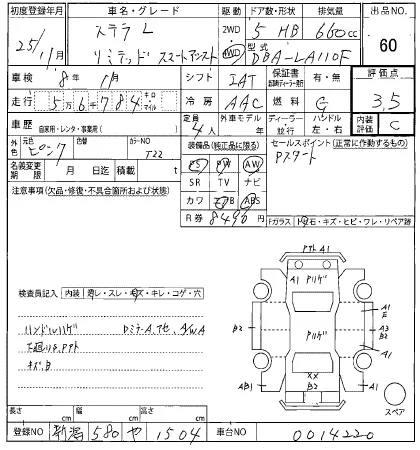 初度登録年月 車名・グレード 駆動 ドア数・形状 排気量 出品No
25年 11月 ステラ L リミテッド スマートアシスト 2WD 4WD 5 HB 660cc 60
型式 DBA-LA110F
車検 8年 11月 シフト IAT 保証書 有・無 評価点
走行 5万6千784 キロ マイル 冷房 AAC 燃料 G 3.5
車歴 自家用・レンタ・事業用( ) 定員 4人 外車モデル 年 ディーラー 並行 ハンドル 左・右 内装評価 C
外色 元色 ピンク 色替 カラーNO T22 装備品(純正品に限る) セールスポイント(正常に作動するもの)
名義変更期限 月 日迄 積載量 t PS PW AW Pスタート
注意事項(欠品・修復・不具合箇所および状態) SR TV ナビ
カワ エアB ABS
R券 8490円
Fガラス 飛石・キズ・ヒビ・ワレ・リペア跡
PテA1
A1 Pハゲ
検査員記入 内装 汚レ・スレ・キズ・キレ・コゲ・穴
A1
E
ハンドルハゲ Dミラー A,アセ, A/WA B2 Pハゲ A3
B2
下廻りサビ
キズB XX
AB1 B2 A1 A1
スペア
長さ cm 幅 cm 高さ cm
登録NO 新潟 580 や 1504 車台NO 0014220